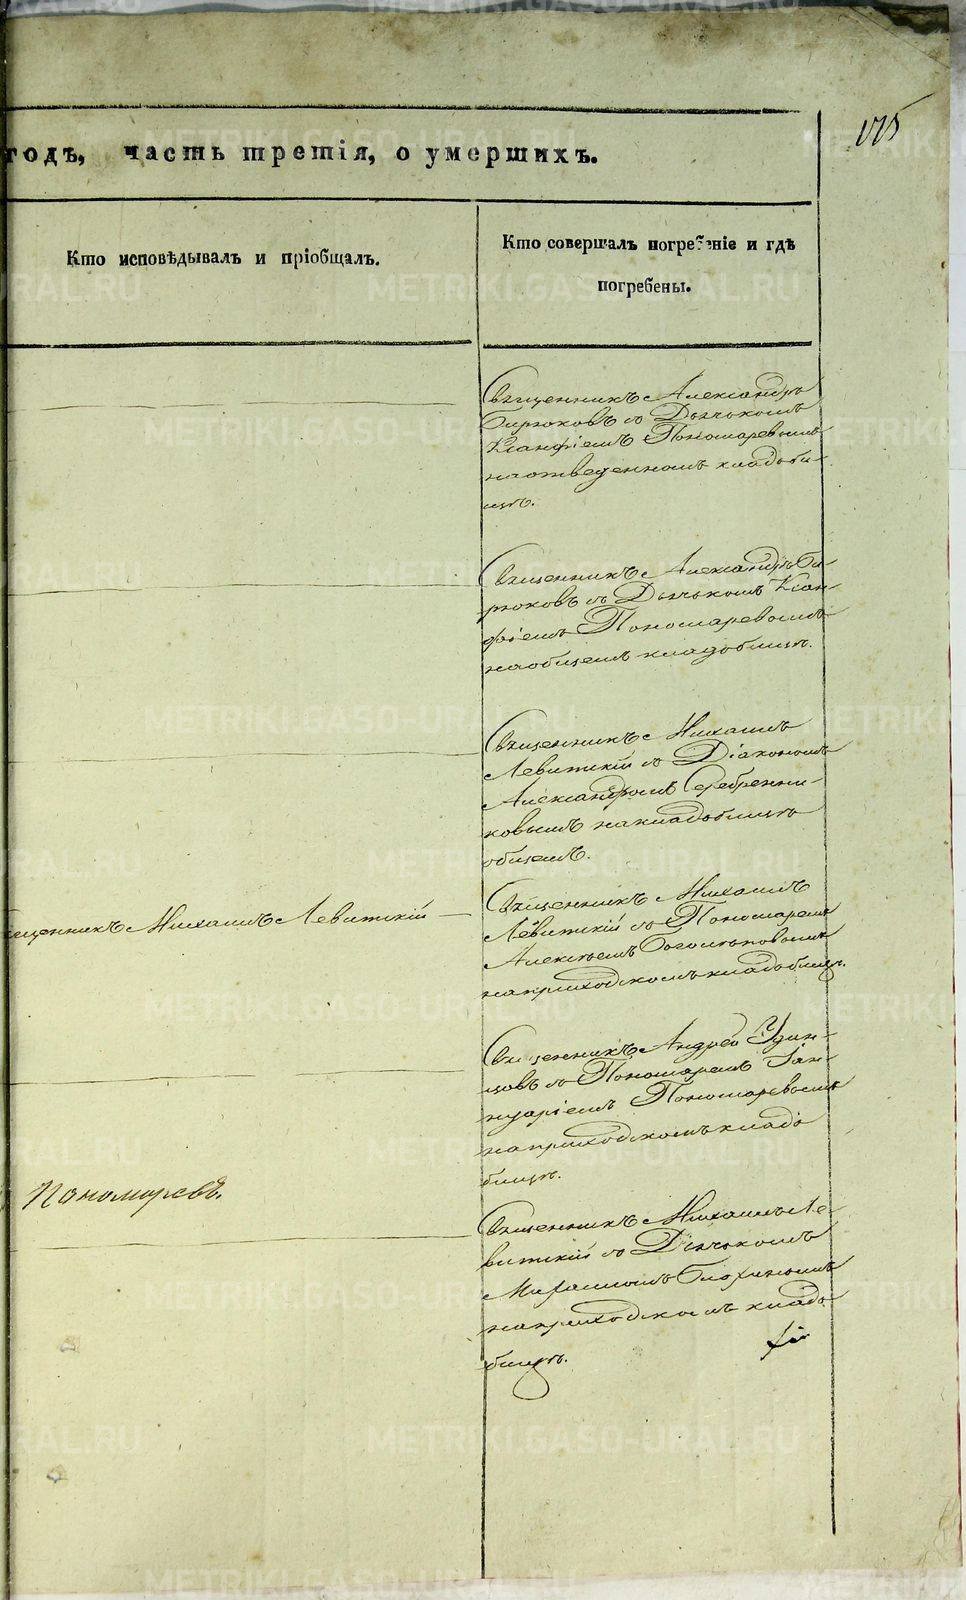 годъ, часть третія, о умершихъ.
Кто исповѣдывалъ и пріобщалъ.
Кто совершалъ погребеніе и гдѣ
погребены.
Священникъ Александръ
Бирюковъ съ Дьячькомъ
Ксанфіемъ Пономаревымъ
на отведенномъ кладби-
щѣ.
Священникъ Александръ Би-
рюковъ съ Дьячькомъ Ксан-
фіемъ Пономаревымъ
на общемъ кладбищѣ.
Священникъ Михаилъ
Левитскій съ Діакономъ
Александромъ Серебренни-
ковымъ на кладбищѣ
общемъ.
Священникъ Михаилъ Левитскій
Священникъ Михаилъ
Левитскій съ Пономаремъ
Алексѣемъ
на приходскомъ кладбищѣ.
Священникъ Андрей Удин-
цовъ съ Пономаремъ Іан-
нуаріемъ Пономаревымъ
на приходскомъ кладо
бищѣ.
Пономаревъ.
Священникъ Михаилъ Ле-
витскій съ Дьячькомъ
на приходскомъ кладо-
бищѣ.
METRIKI.GASO-URAL.RU